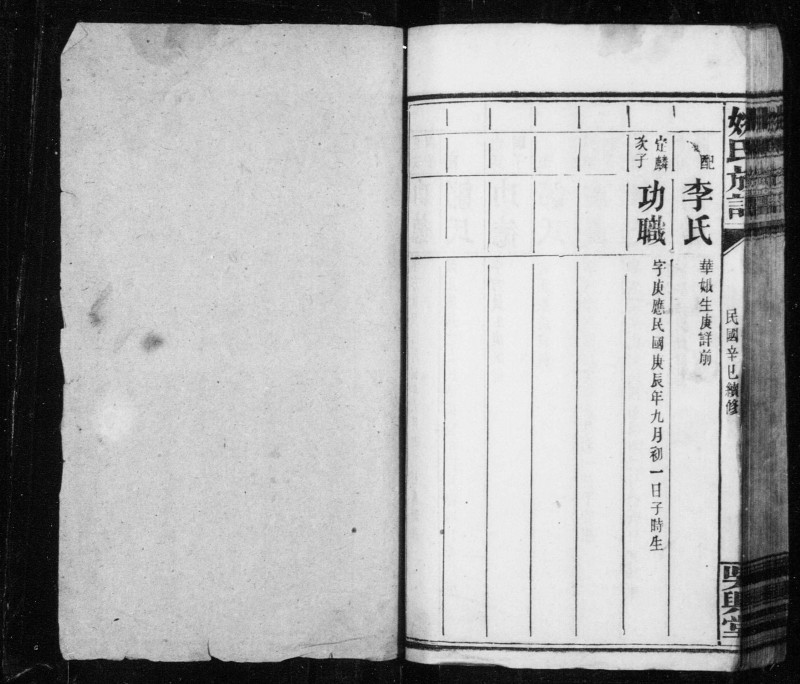 姚氏族譜
民國辛巳續修
吳興堂
配
李氏
華娥生庚詳前
定麟
次子
功職
字庚應民國庚辰年九月初一日子時生